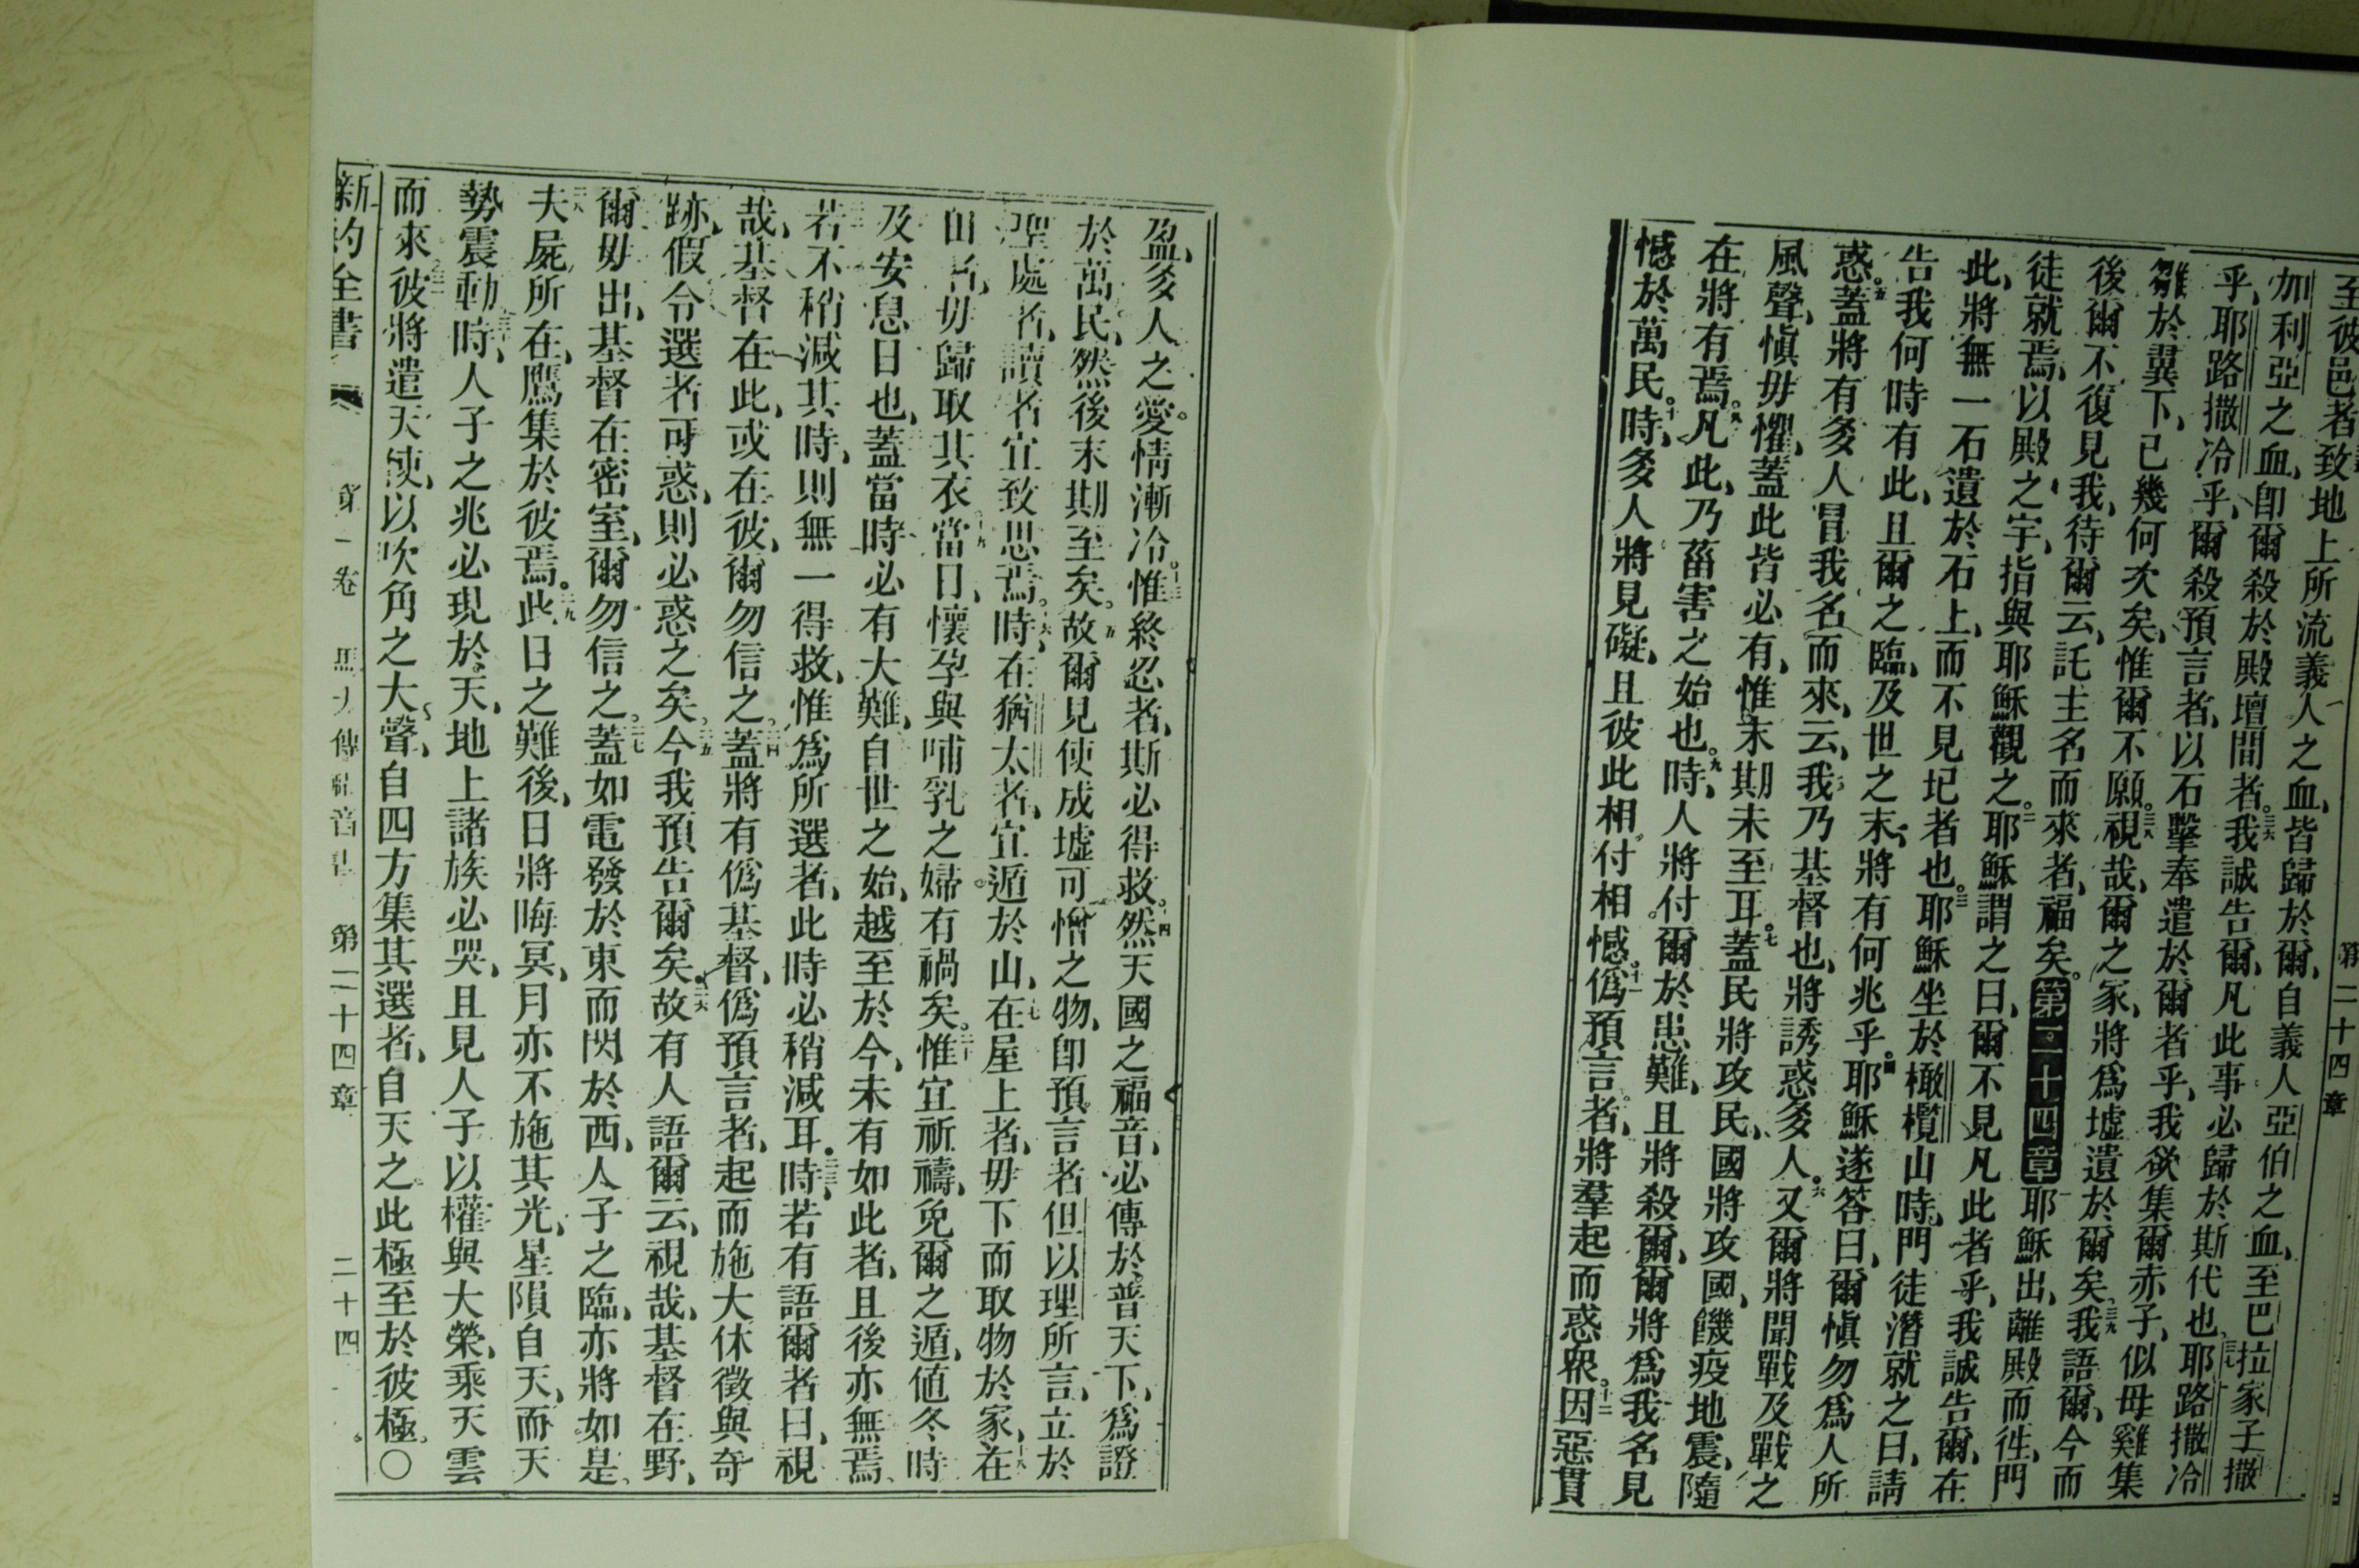 第二十四章
至彼邑者致地上所流義人之血、皆歸於爾、自義人亞伯之血、至巴拉家子撒
加利亞之血、卽爾殺於殿壇間者。三六我誠告爾、凡此事必歸於斯代也、三七耶路撒冷
乎、耶路撒冷乎、爾殺預言者、以石擊奉遣於爾者乎、我欲集爾赤子、似母雞集
雛於翼下、已幾何次矣、惟爾不願。三八視哉、爾之家、將爲墟遺於爾矣。三九我語爾、今而
後爾不復見我、待爾云、託主名而來者、福矣。第二十四章一耶穌出、離殿而徃、門
徒就焉、以殿之宇、指與耶穌觀之。二耶穌謂之曰、爾不見凡此者乎、我誠告爾、在
此、將無一石遺於石上、而不見圮者也。三耶穌坐於橄欖山時、門徒潛就之曰、請
告我何時有此、且爾之臨、及世之末、將有何兆乎。四耶穌遂答曰、爾愼勿爲人所
惑。五蓋將有多人冒我名而來、云、我乃基督也、將誘惑多人。六又爾將聞戰及戰之
風聲、愼毋懼、蓋此皆必有、惟末期未至耳。七蓋民將攻民、國將攻國、饑疫地震、隨
在將有焉。八凡此、乃菑害之始也。九時、人將付爾於患難、且將殺爾、爾將爲我名見
憾於萬民。十時、多人將見礙、且彼此相付相憾。十一僞預言者、將羣起而惑衆。十二因惡貫
盈、多人之愛情漸冷。十三惟終忍者、斯必得救。十四然天國之福音、必傳於普天下、爲證
於萬民、然後末期至矣。十五故爾見使成墟可憎之物、卽預言者但以理所言、立於
聖處者、讀者宜致思焉。十六時、在猶太者、宜遁於山、十七在屋上者、毋下而取物於家、十八在
田者、毋歸取其衣。十九當日、懷孕與哺乳之婦、有禍矣。二十惟宜祈禱、免爾之遁、値冬時
及安息日也、二一蓋當時必有大難、自世之始、越至於今、未有如此者、且後亦無焉、
二二若不稍減其時、則無一得救、惟爲所選者、此時必稍減耳。二三時、若有語爾者曰、視
哉、基督在此、或在彼、爾勿信之。二四蓋將有僞基督、僞預言者、起而施大休徵與奇
跡、假令選者可惑、則必惑之矣。二五今我預告爾矣。二六故有人語爾云、視哉、基督在野、
爾毋出、基督在密室、爾勿信之。二七蓋如電發於東而閃於西、人子之臨、亦將如是。
二八夫屍所在、鷹集於彼焉。二九此日之難後、日將晦冥、月亦不施其光、星隕自天、而天
勢震動、三十時、人子之兆必現於天、地上諸族必哭、且見人子以權與大榮、乘天雲
而來、三一彼將遣天使、以吹角之大聲、自四方集其選者、自天之此極至於彼極。〇
新約全書 第一卷 馬太傳福音書 第二十四章 二十四